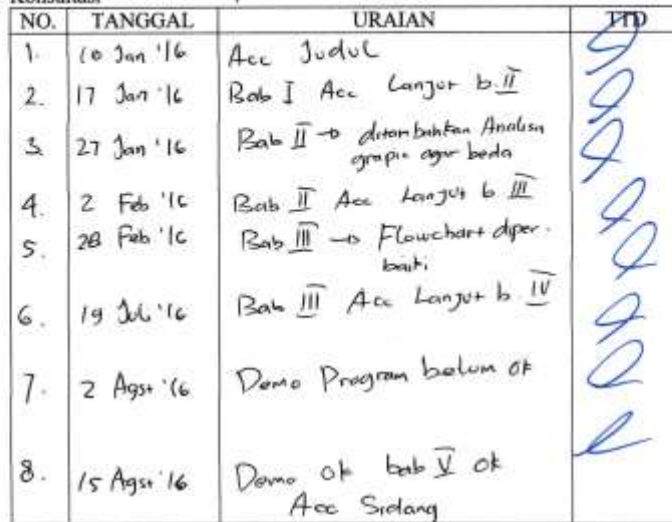 NO. TANGGAL URAIAN TTD
1. 10 Jan '16 Acc Judul
2. 17 Jan '16 Bab I Acc Lanjut b. II
3. 27 Jan '16 Bab II → ditambahkan Analisa
grapic agar beda
4. 2 Feb '16 Bab II Acc Lanjut b III
5. 28 Feb '16 Bab III → Flowchart diper-
baiki
6. 19 Juli '16 Bab III Acc Lanjut b. IV
7. 2 Agst '16 Demo Program belum ok
8. 15 Agst '16 Demo ok bab V ok
Acc Sidang